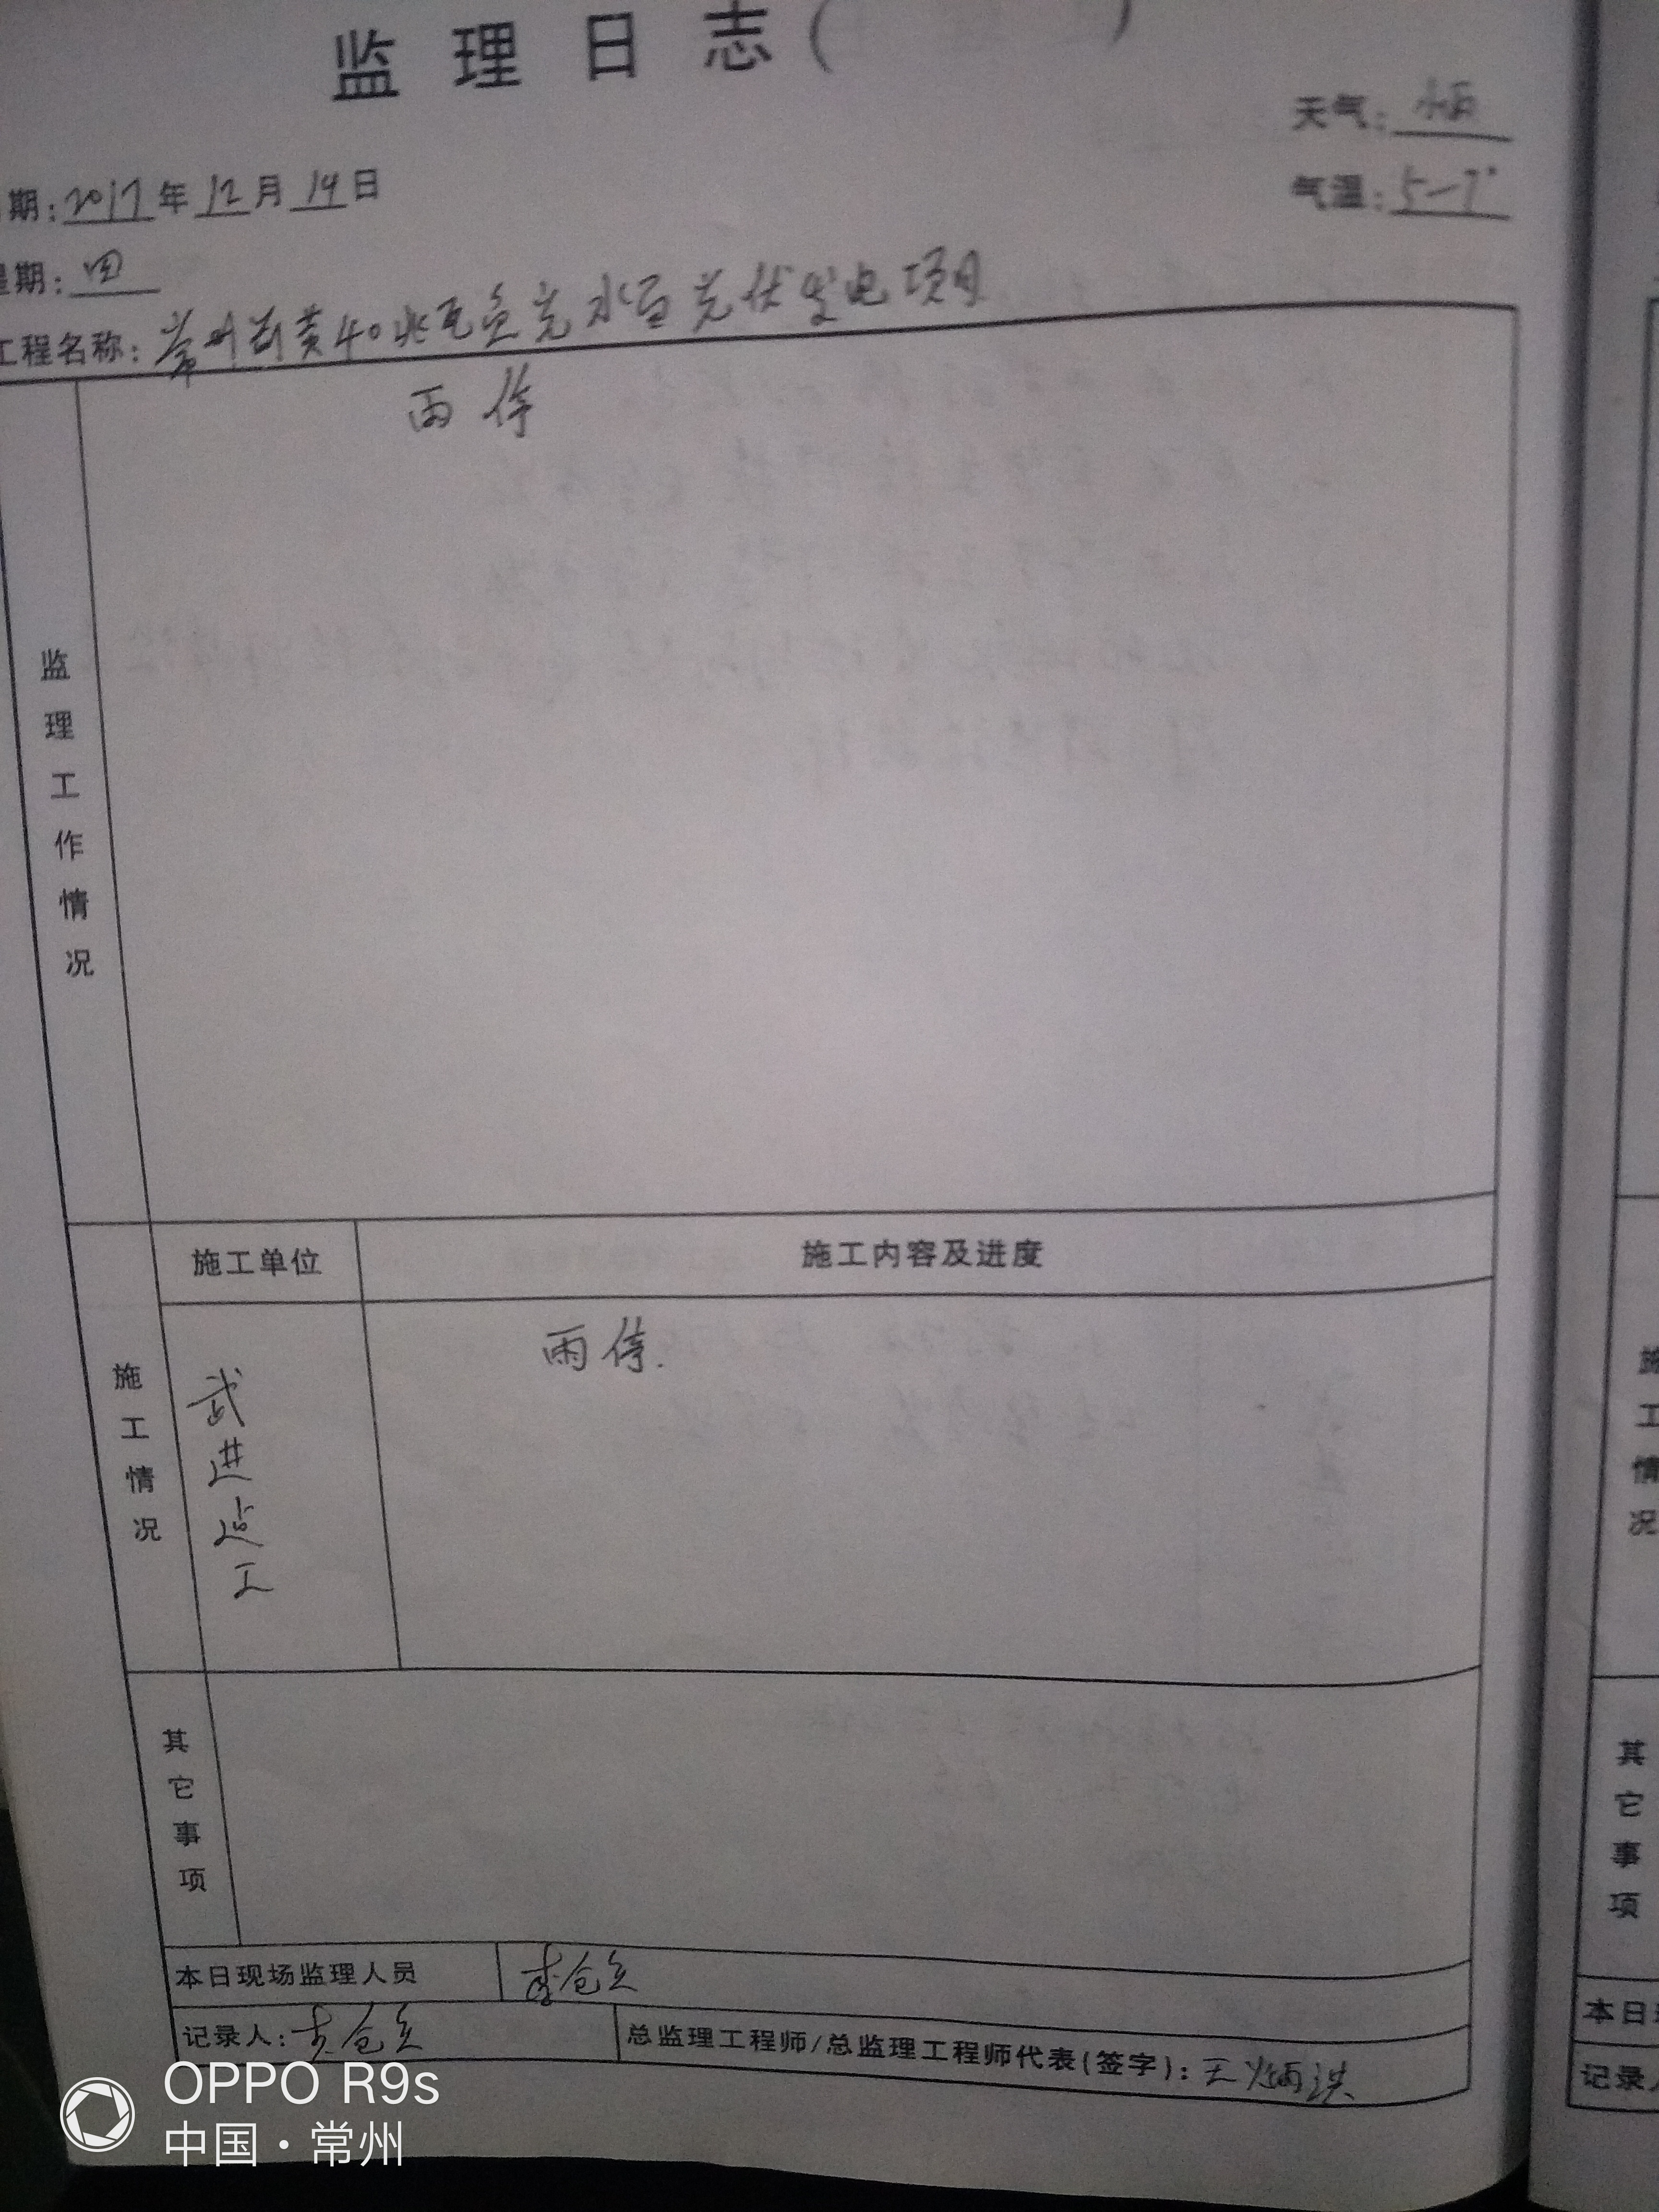 监理日志( )
天气: 小雨
期: 2017年12月14日
气温: 5—7°
星期: 四
工程名称: 常州新黄40兆瓦渔光水面光伏发电项目
雨停
监理工作情况
施工单位
施工内容及进度
施工情况
武进建工
雨停.
其它事项
本日现场监理人员
李仓立
记录人: 李仓立
总监理工程师/总监理工程师代表(签字): 王炳洪
OPPO R9s
中国·常州
施工情况
其它事项
本日
记录人